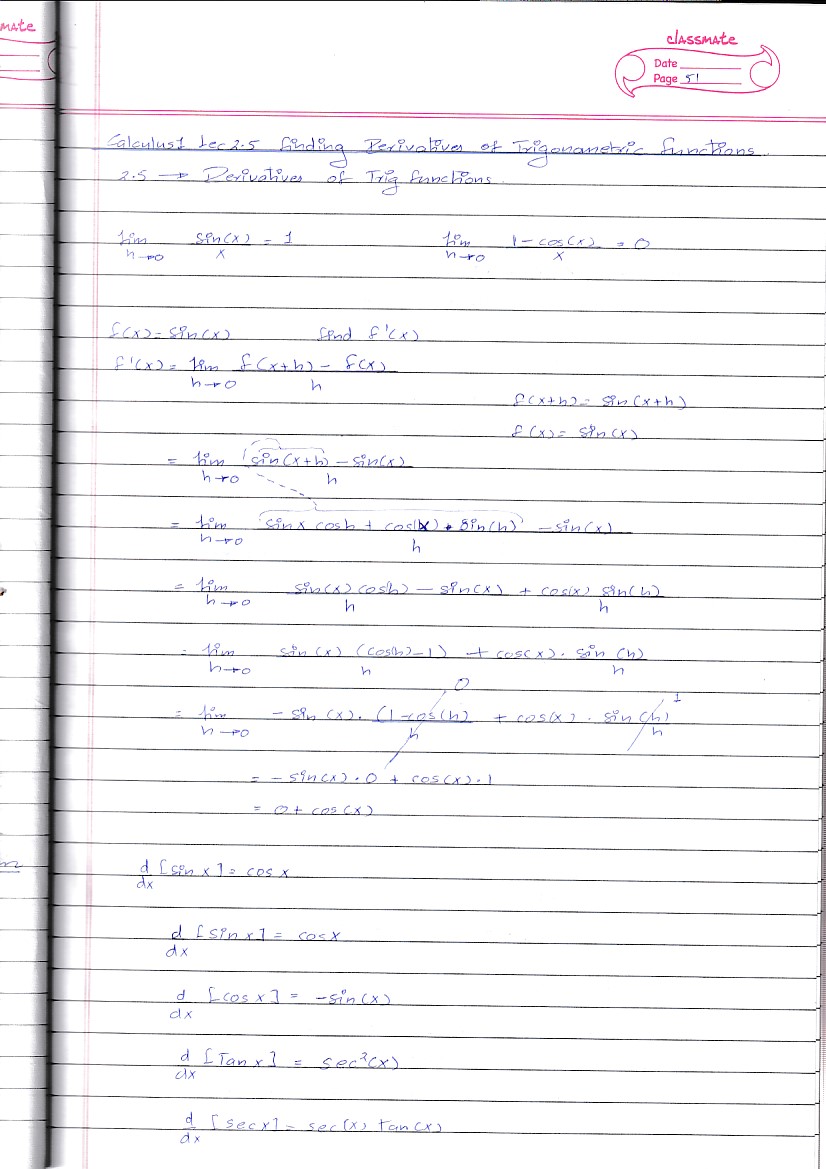 mate
classmate
Date
Page 51
Calculus 1 Lec 2.5 finding Derivatives of Trigonametric functions.
2.5 → Derivatives of Trig functions.
lim h→0 sin(x)/x = 1 lim h→0 1-cos(x)/x = 0
f(x) = sin(x) find f'(x)
f'(x) = lim h→0 f(x+h) - f(x)/h
f(x+h) = sin(x+h)
f(x) = sin(x)
= lim h→0 sin(x+h) - sin(x)/h
= lim h→0 sinx cosh + cos(x) • sin(h) - sin(x)/h
= lim h→0 sin(x) cos(h) - sin(x)/h + cos(x) sin(h)/h
= lim h→0 sin(x) (cos(h)-1)/h + cos(x) . sin(h)/h
0 1
= lim h→0 - sin(x) . (1-cos(h)/h + cos(x) . sin(h)/h
= - sin(x) . 0 + cos(x) . 1
= 0 + cos(x)
d/dx [sin x] = cos x
d/dx [sin x] = cosx
d/dx [cos x] = -sin(x)
d/dx [Tan x] = sec²(x)
d/dx [sec x] = sec(x) tan(x)